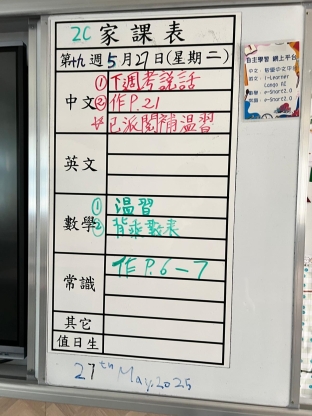 2C 家課表
第十九週5月27日(星期二)
中文
①下週考説話
②作P.21
☆已派閱補温習
英文
數學
①温習
②背乘數表
常識
作P.6－7
其它
值日生
27th May.2025
自主學習 網上平台
i-Learner
e-Smart2.0
e-Smart2.0